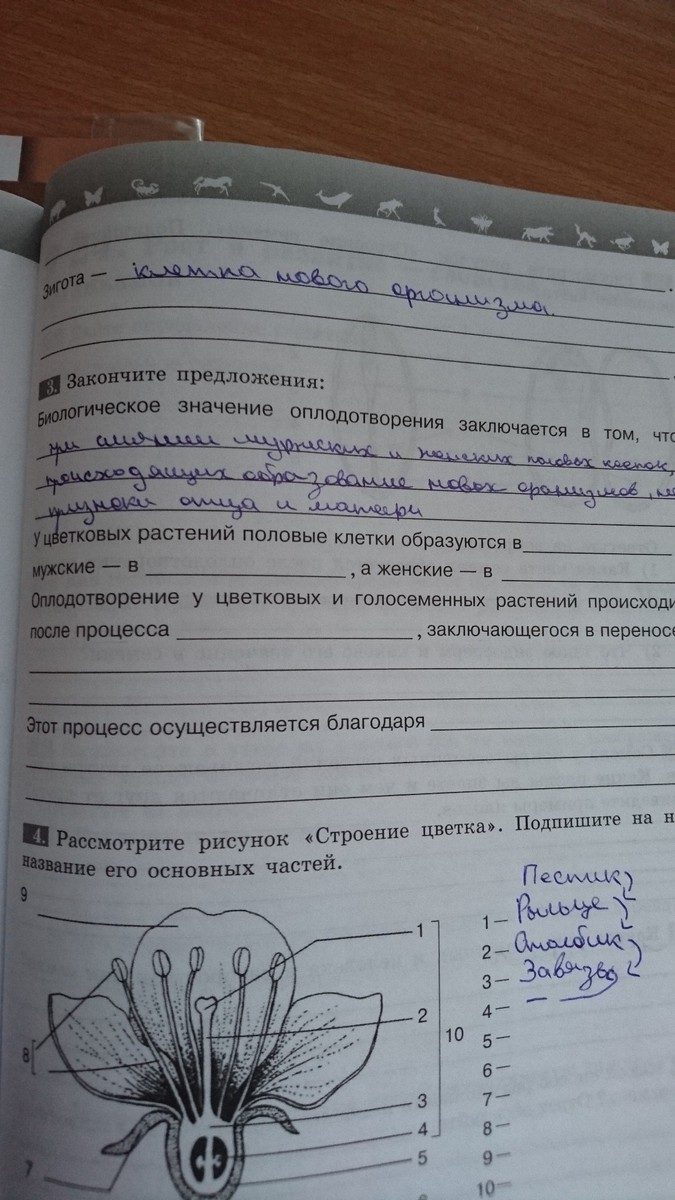 Зигота — клетка нового организма.
3. Закончите предложения:
Биологическое значение оплодотворения заключается в том, что
при слиянии мужских и женских половых клеток,
происходящих образование новых организмов, не
признаки отца и матери
У цветковых растений половые клетки образуются в
мужские — в , а женские — в
Оплодотворение у цветковых и голосеменных растений происходи
после процесса , заключающегося в переносе
Этот процесс осуществляется благодаря
4. Рассмотрите рисунок «Строение цветка». Подпишите на н
название его основных частей.
Пестик
1— Рыльце
2— Столбик
3— Завязь
4—
5—
6—
7—
8—
9—
10—
9
1
2
10
8
3
4
5
7